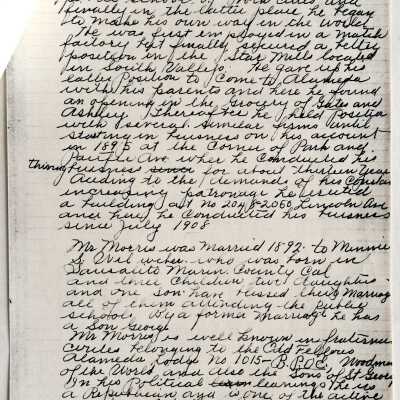 finally in the latter place he began
to make his own way in the world
He was first employed in a match
factory but finally secured a better
position in the Star Mills located
in South Vallejo. He gave up the
latter Position to Come to Alameda
with his parents and here he found
an opening in the Grocery of Gates and
Ashley. Thereafter he held Positin
with several Similar firms until
starting in business own his account
in 1895 at the Corner of Park and
Pacific Ave wher he Conducted his
thriving business since for about thirteen Years
Awing to the demands of his Constan
increasing Patronage he erected
a building at No 2048 2050 Lincoln Ave
and here he Conducted his business
since July 1908
Mr Morris was Married 1892 to Minnie
S. who was born in
Sausalito Marin County Cal
and three Children two daughters
and one son have blessed their Marriage
all of them attending the Public
schools. By a former Marriage he has
a Son George
Mr Morris is well known in fraternal
circles belonging to the Odd Fellows
Alameda Lodge No 1015 B.P.O.E. Woodmen
of the World and also the Sons of St George
In his Political leanings he is
a Republican and is one of the active